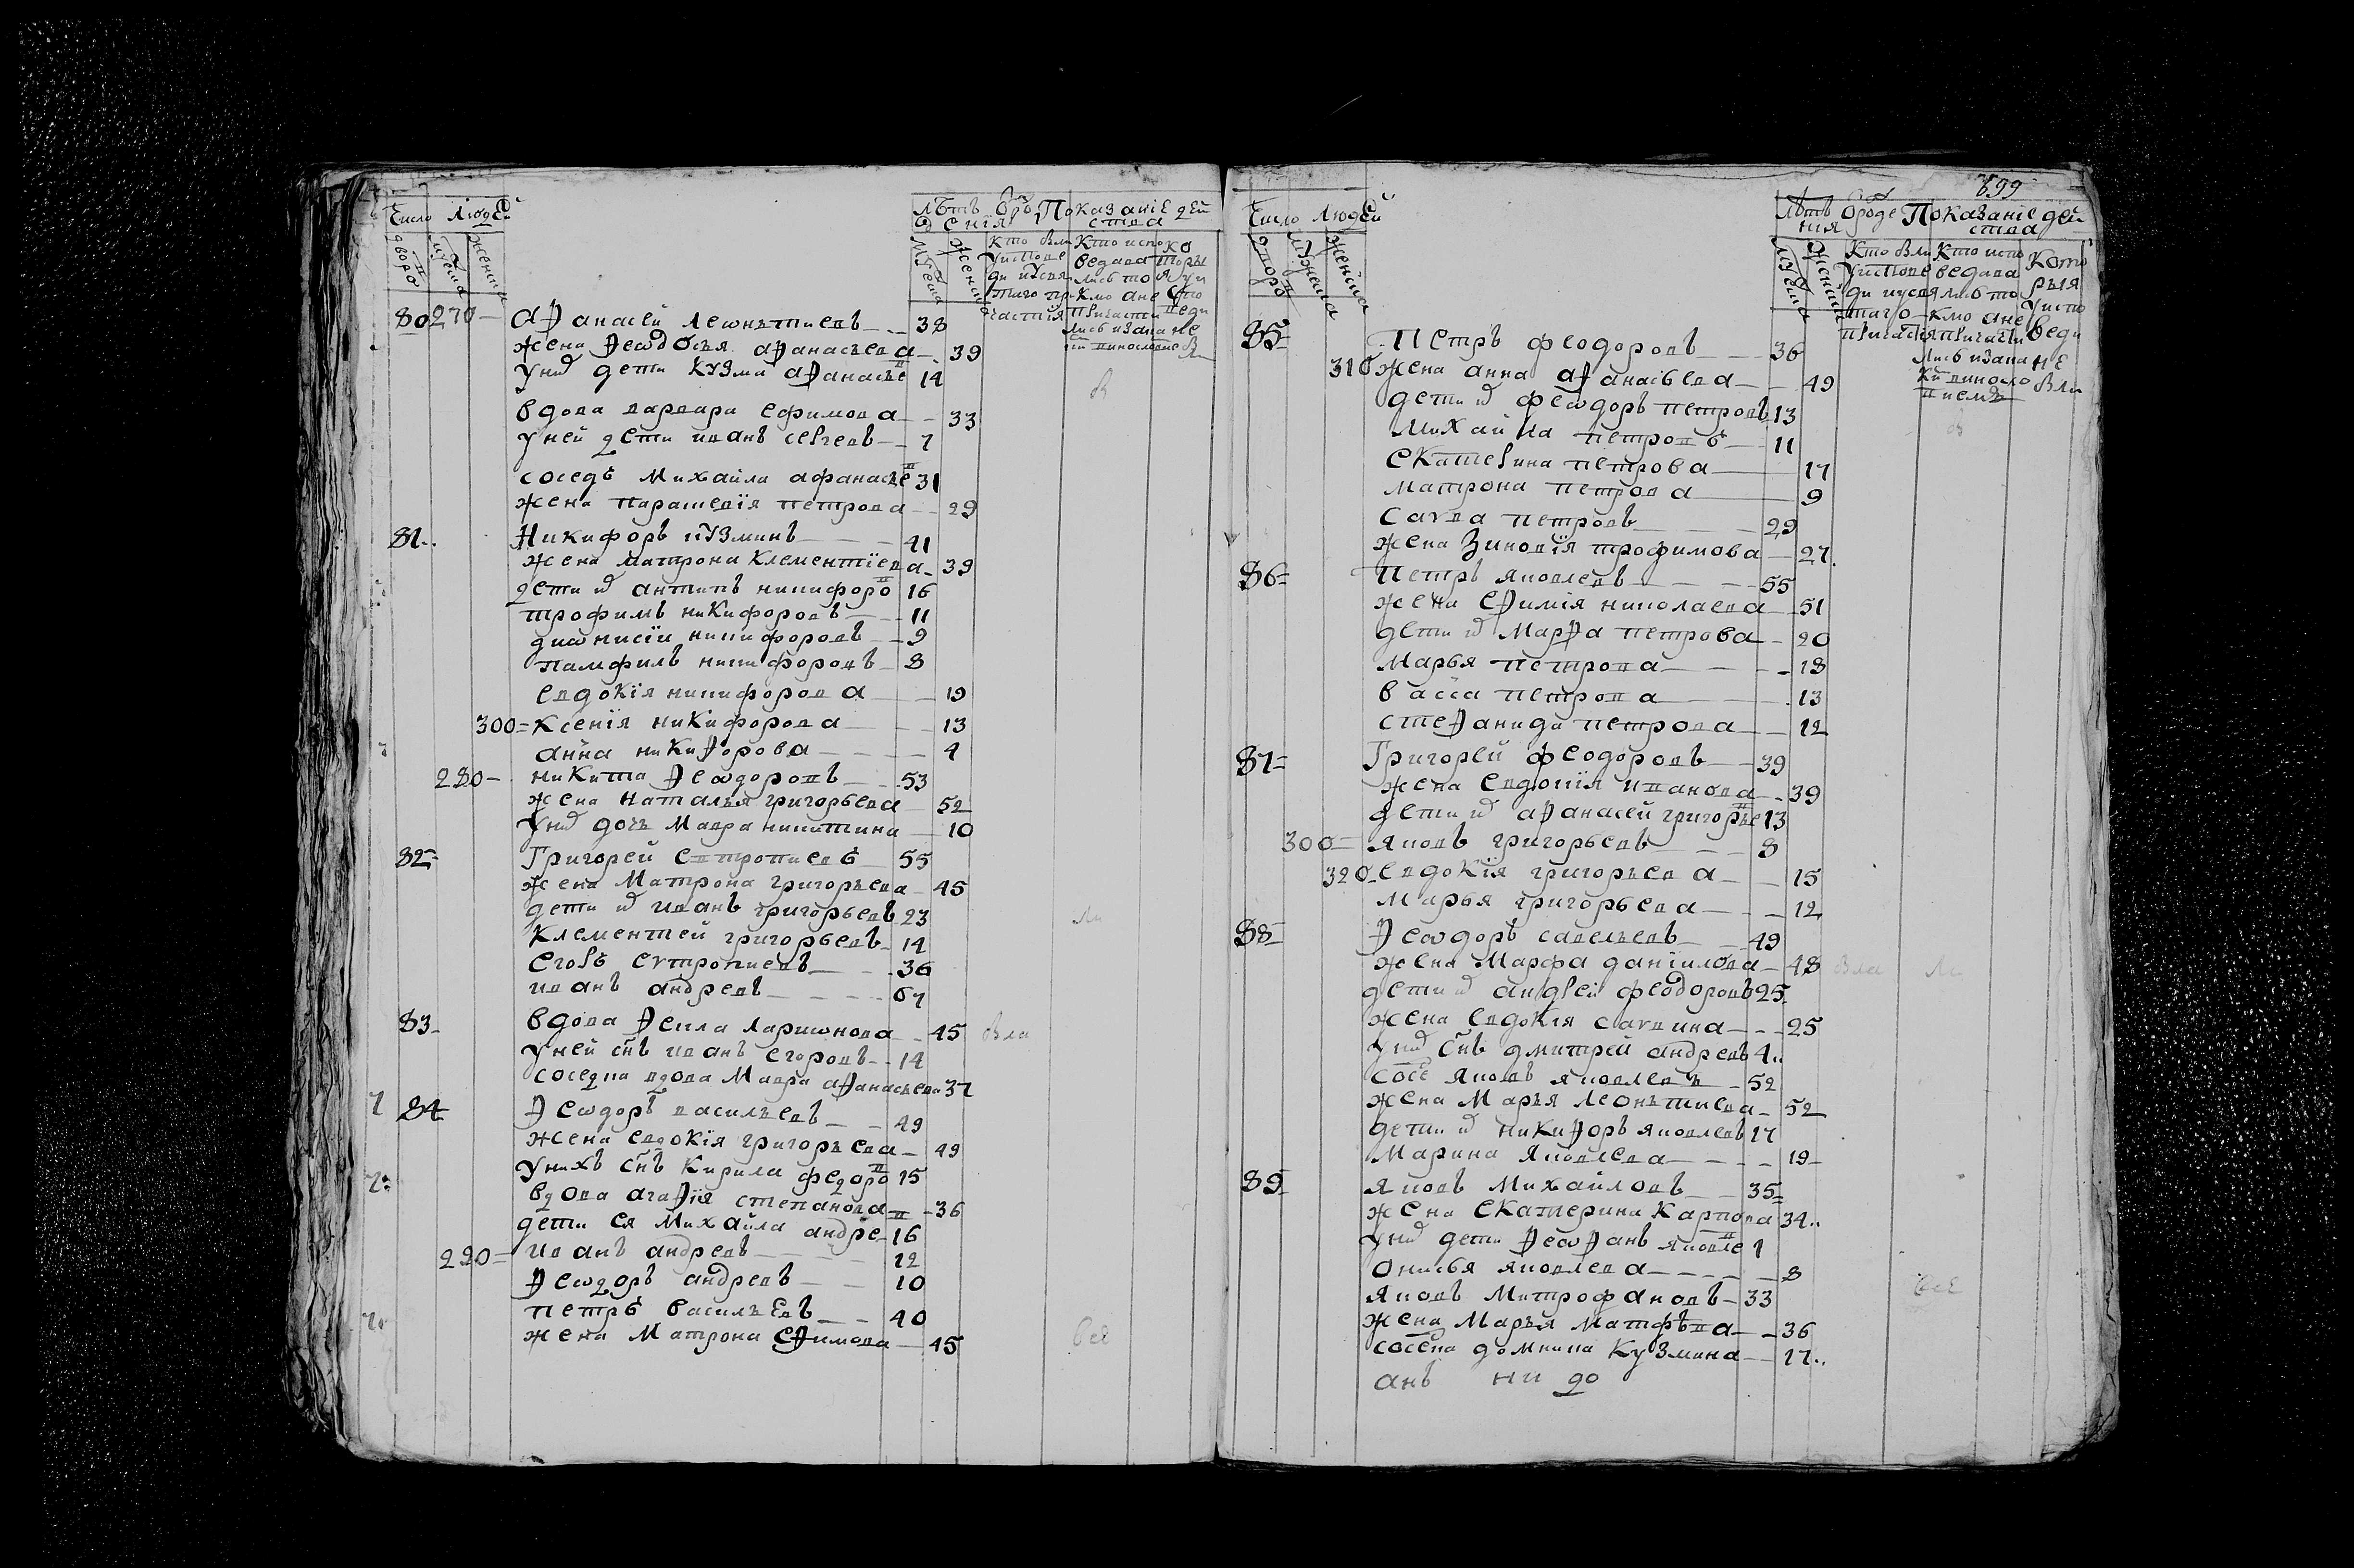 Число Людей
дворо мужеска женска
лѣтъ врож Показание дей
дения ства
мужеска женска
Кто были Кто испо ко
у исповеди и у свя ведава торы
таго при лись то я у и
частия кмо а не спо
причасти веди
лись и зака не
80 270 — Афанасей Леѡнътиевъ — 38
жена Феѡдосья афанасьева — 39
у них дети кузма афанасье 14
вдова варвара ефимова — 33
у ней дети иванъ сергевъ — 7
соседъ Михайла афанасье 31
жена парасковїя петрова — 29
81 Никифоръ кузминъ — 41
жена матрона клементїева — 39
дети их антипъ никифоро 16
трофимъ никифоровъ — 11
диѡнисїи никифоровъ — 9
памфилъ никифоровъ — 8
евдокїя никифорова — 19
300 = Ксенїя никифорова — 13
анна никифорова — 4
280 — никита Феѡдоровъ — 53
жена наталья григорьева — 52
у них дочь Мавра никитина — 10
82 = Григорей евтропиевъ — 55
жена Матрона григорьева — 45
дети их иванъ григорьевъ 23
Клементей григорьевъ — 14
Егоръ евтропиевъ — 36
иванъ андревъ — 67
83 — вдова Фекла Лариѡнова — 45 вла
у ней снъ иванъ егоровъ — 14
соседка вдова Мавра афанасьева 37
84 Феѡдоръ васильевъ — 49
жена евдокїя григорьева — 49
у нихъ снъ Кирила федоро 15
вдова агафїя степанова — 36
дети ея Михайла андре 16
290 = иванъ андревъ — 12
Феѡдоръ андревъ — 10
петръ васильевъ — 40
жена Матрона ефимова — 45 все
699
Число Людей
лѣтъ вроде Показание дей
ния ства
85 = Петръ феодоровъ — 36
310 жена анна афанасьева — 49
дети их феѡдоръ петровъ 13
Михайла петровъ — 11
екатерина петрова — 17
матрона петрова — 9
савва петровъ — 29
жена Зиновїя трофимова — 27
86 = Петръ яковлевъ — 55
жена ефимїя николаева — 51
дети их Марфа петрова — 20
Марья петрова — 18
васса петрова — 13
стефанида петрова — 12
87 = Григорей феодоровъ — 39
жена евдокїя иванова — 39
дети их афанасей григорье 13
300 = яковъ григорьевъ — 8
320 евдокїя григорьева — 15
Марья григорьева — 12
88 = Феѡдоръ савельевъ — 49
жена Марфа данїилова — 48 вла
дети их андрей феодоровъ 25
жена евдокїя саввина — 25
у них снъ дмитрей андревъ 4
сосе яковъ яковлевъ — 52
жена Марья Леонътиева — 52
дети их никифоръ яковлевъ 17
Марина яковлева — 19
89 = яковъ Михайловъ — 35
жена екатерина Карпова 34
у них дети Феѡфанъ яковле 1
онисья яковлева — 8
яковъ Митрофановъ — 33 все
жена Марья Матфѣва — 36
соседка домника кузмина — 17
анъ ни до